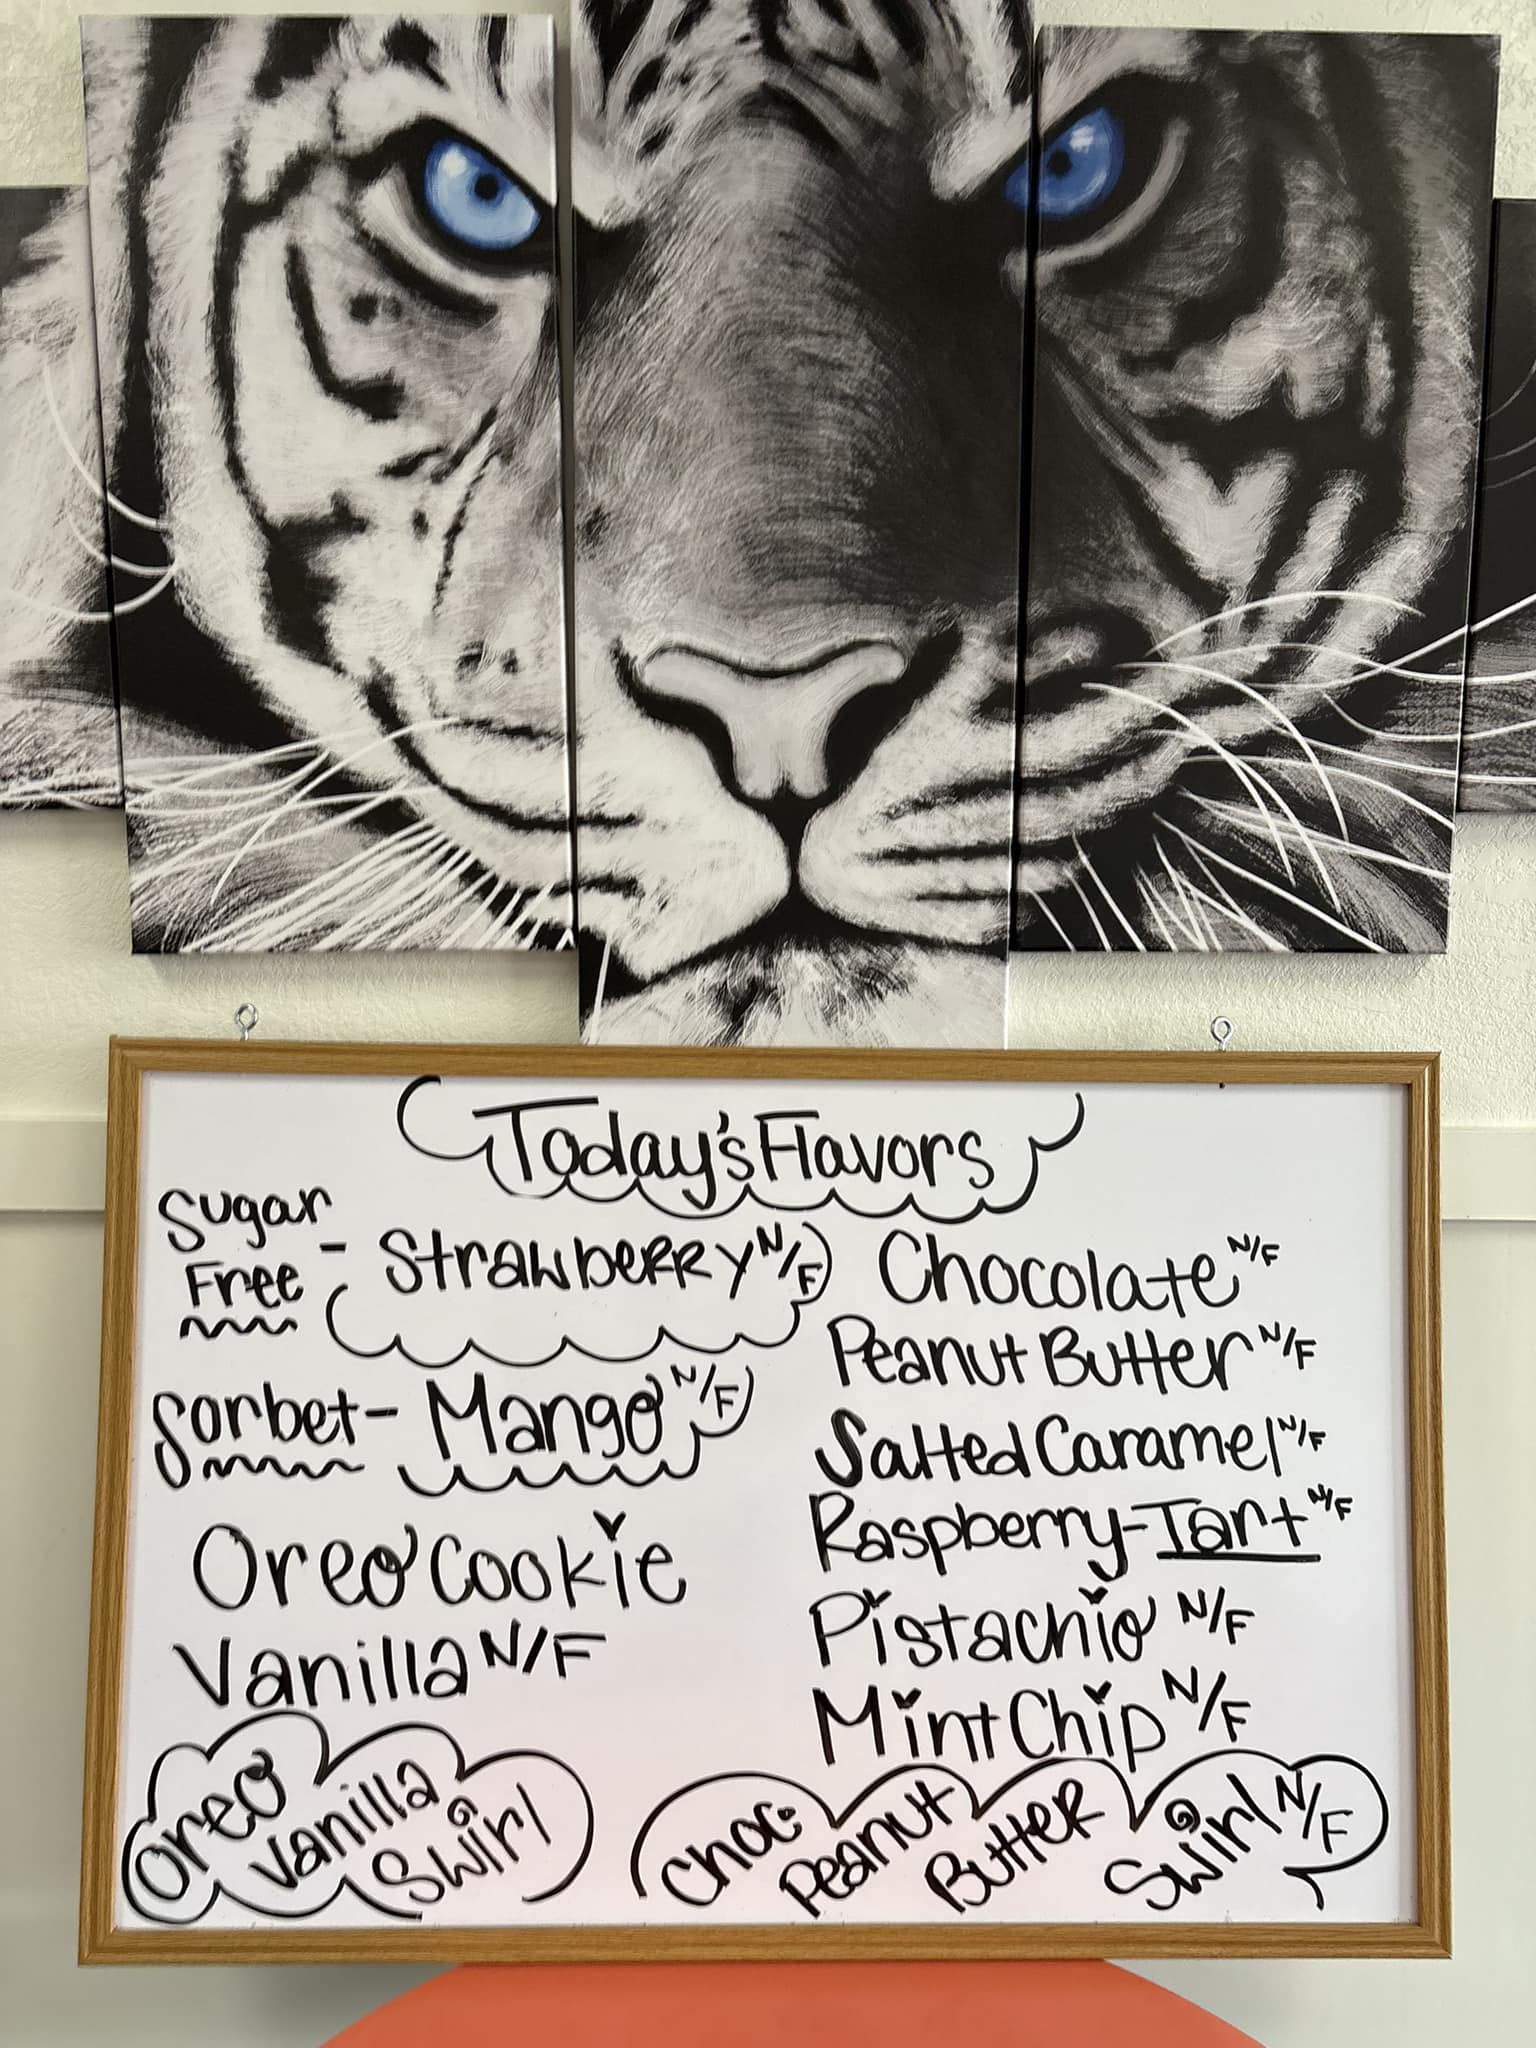 Today's Flavors
Sugar
Free - Strawberry N/F
Sorbet - Mango N/F
Oreo Cookie
Vanilla N/F
Oreo Vanilla Swirl
Chocolate N/F
Peanut Butter N/F
Salted Caramel N/F
Raspberry-Tart N/F
Pistachio N/F
Mint Chip N/F
Choc. Peanut Butter Swirl N/F